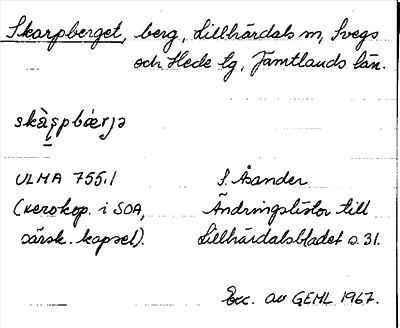 Skarpberget, berg, Lillhärdals sn, Svegs
och Hede tg, Jämtlands län.
skàʂpbǽrjə
ULMA 755:1
(xerokop. i SOA,
särsk. kapsel).
S. Åsander
Ändringslistor till
Lillhärdalsbladet s. 31.
Exc. av GEHL 1967.